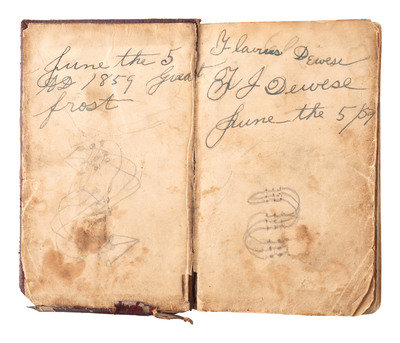 June the 5
AD 1859 Great
frost
Flavius Dewese
F J Dewese
June the 5/59